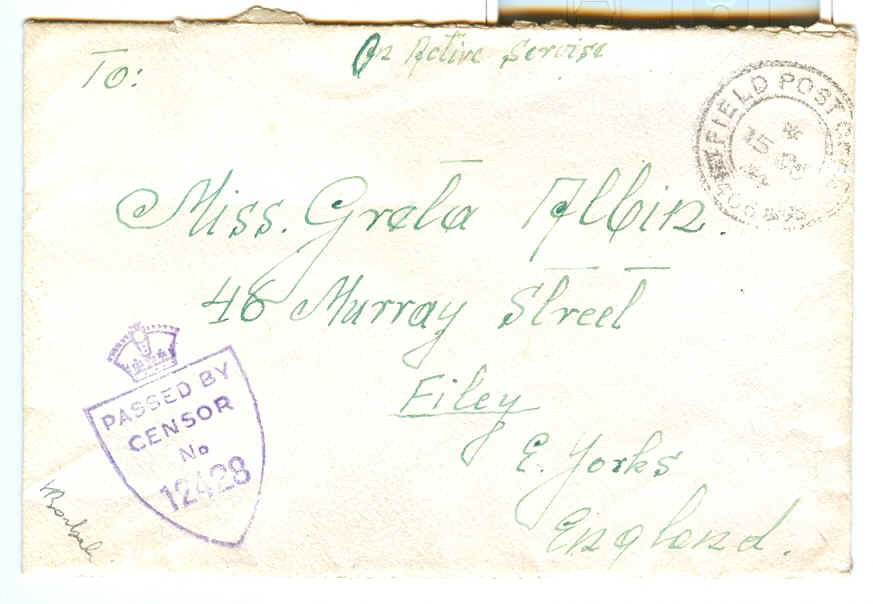 On Active Servise
To:
FIELD POST OFFICE
15
Miss. Greta Albin.
48 Murray Street
Filey
E. Yorks
England.
PASSED BY
CENSOR
No
12428